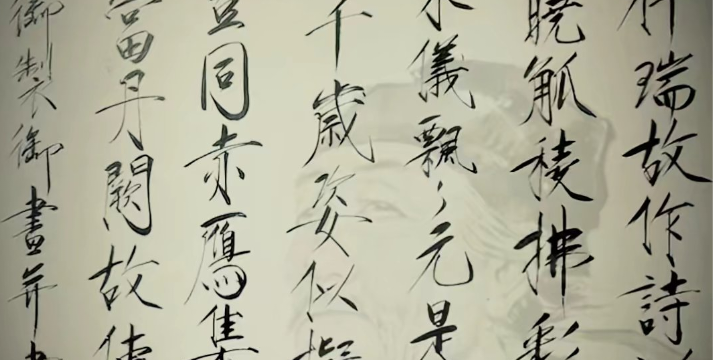 瑞故作詩
曉觚稜拂彩
儀飄々元是
千歲姿似擬
豈同赤鴈集
當丹闕故使
御製御畫并書